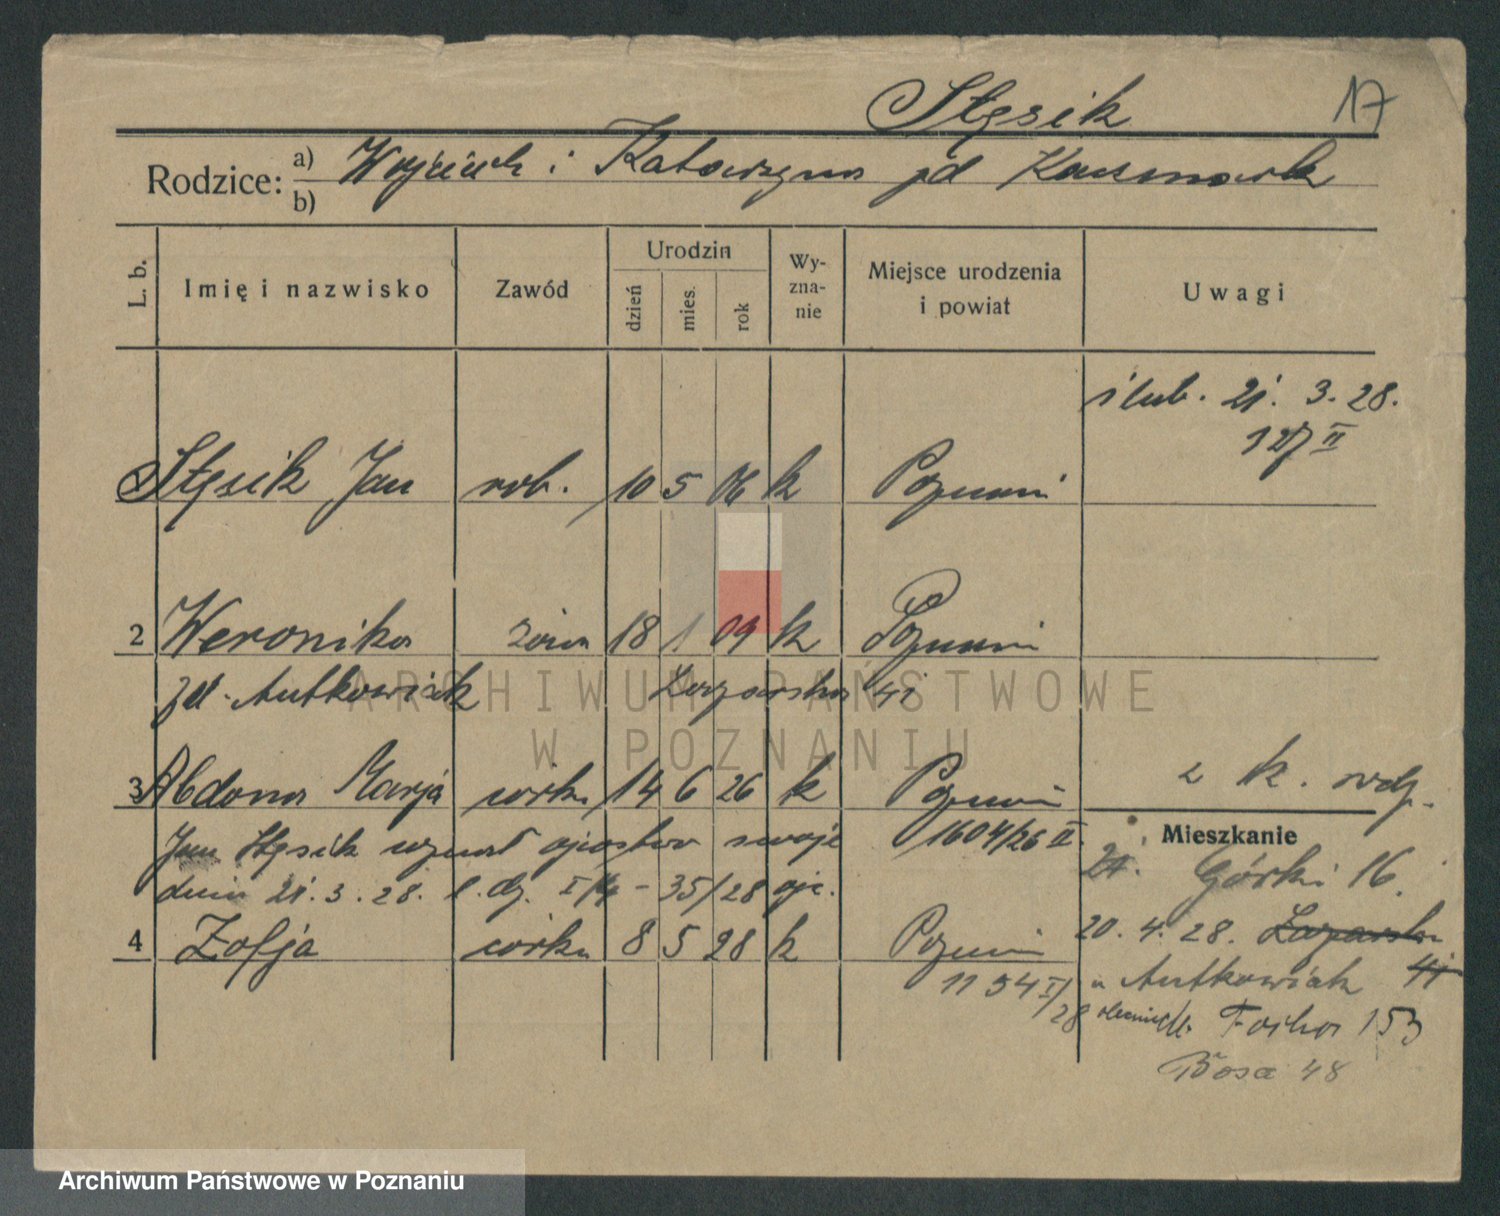 Stęsik 17
Rodzice: a) Wojciech i Katarzyna zd Kaczmarek
b)
L. b. Imię i nazwisko Zawód Urodzin dzień mies. rok Wy-zna-nie Miejsce urodzenia i powiat Uwagi
ślub. 21. 3. 28.
127 II
Stęsik Jan rob. 10 5 06 k Poznań
2 Weronika żona 18 1 09 k Poznań
zd. Antkowiak Łazarska 41
3 Abdona Marja córka 14 6 26 k Poznań
1604/26 II.
Jan Stęsik uznał ojcostwo swoje
dnia 21. 3. 28. 35/28
4 Zofja córka 8 5 28 k Poznań
1154 I/28
z k.
Mieszkanie
Górki 16.
20. 4. 28. Łazarska 41
u Antkowiak
Focha 153
Bosa 48
ARCHIWUM PAŃSTWOWE
W POZNANIU
Archiwum Państwowe w Poznaniu